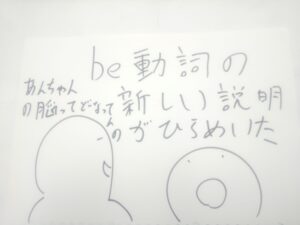 be動詞の
新しい説明
がひらめいた
あんちゃん
の脳ってどなって
んの